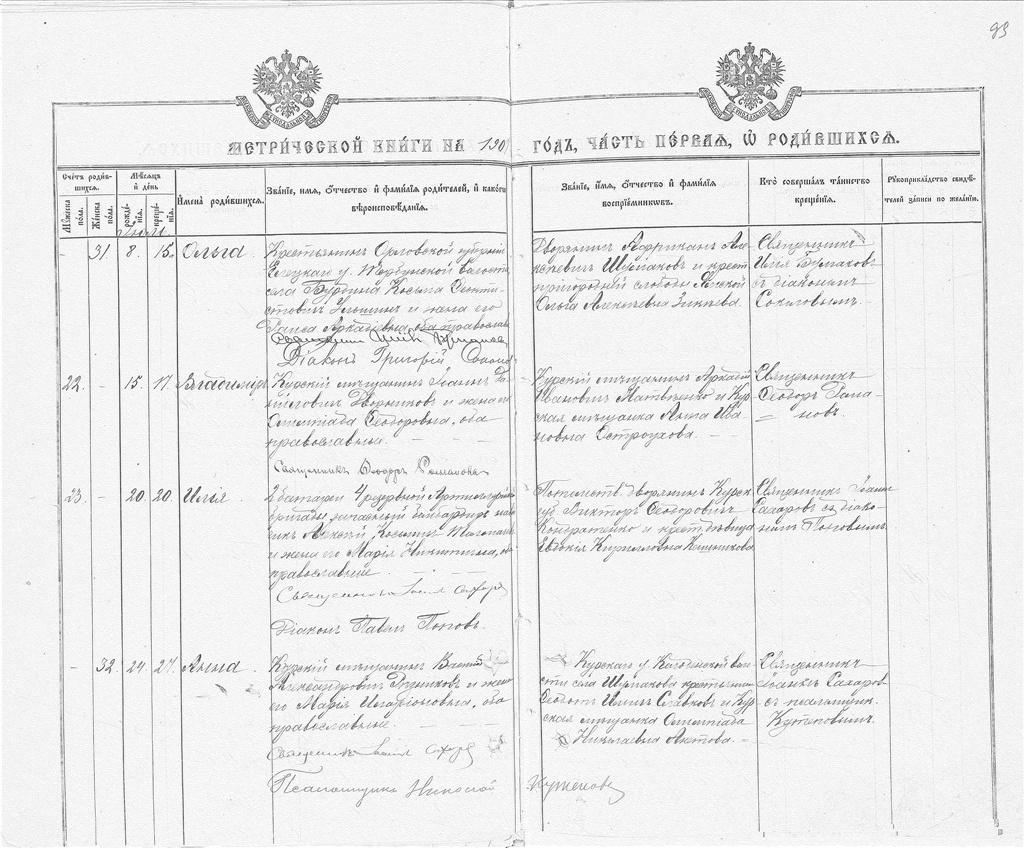 93
МЕТРИЧЕСКОЙ КНИГИ НА 190 ГОДЪ, ЧАСТЬ ПЕРВАЯ, Ѡ РОДИВШИХСЯ.
Счетъ родившихся.
Мужеска пола.
Женска пола.
Мѣсяцъ и день
рожденія.
крещенія.
Имена родившихся.
Званіе, имя, отчество и фамилія родителей, и какого вѣроисповѣданія.
Званіе, имя, отчество и фамилія воспріемниковъ.
Кто совершалъ таинство крещенія.
Рукоприкладство свидѣтелей записи по желанію.
Іюль.
- 31. 8. 15. Ольга
Крестьянинъ Орловской губерніи
Елецкаго у. Тербунской волости
села Бурдина Косьма
и жена его
Раиса Аркадіевна, оба православн
Священникъ Илія Бурмаковъ
Діаконъ Григорій Сокол
Дворянинъ Африканъ Але
ксѣевичъ Шумаковъ и крест
пригородней слободы Ямской
Ольга Алексѣевна
Священникъ
Илія Бурмаковъ
съ діакономъ
Соколовымъ.
22. - 15. 17. Владиміръ
Курскій мѣщанинъ Іоаннъ Да
ніиловичъ Дворниковъ и жена его
Олимпіада Ѳеодоровна, оба
православные.
Священникъ Ѳеодоръ Романовъ
Курскій мѣщанинъ Аркадій
Ивановичъ Матвѣенко и Кур
ская мѣщанка Анна Ива
новна Остроухова.
Священникъ
Ѳеодоръ Рома
= новъ.
23. - 20. 20. Илія.
2 батареи 4 резервной Артиллерійской
бригады
Алексѣй Косьминъ
и жена его Марія Никитина, оба
православные.
Священникъ Іоаннъ Сахаровъ
Діаконъ Павелъ Поповъ.
Потомств. дворянинъ Курск
губ Викторъ Ѳеодоровичъ
Кондратенко и крест. дѣвица
Евдокія Кирилловна Кашникова
Священникъ Іоаннъ
Сахаровъ съ діако-
номъ Поповымъ.
- 32. 24. 27. Анна.
Курскій мѣщанинъ Василій
Александровичъ Рудниковъ и жена
его Марія Иларіоновна, оба
православные.
Священникъ Іоаннъ Сахаровъ
Псаломщикъ Николай
Курскаго у. вол
ости села Шумакова крестьянинъ
Ѳеодотъ Ильинъ Славковъ и Кур
ская мѣщанка Олимпіада
Николаевна Актова.
Священникъ
Іоаннъ Сахаровъ
съ псаломщик.